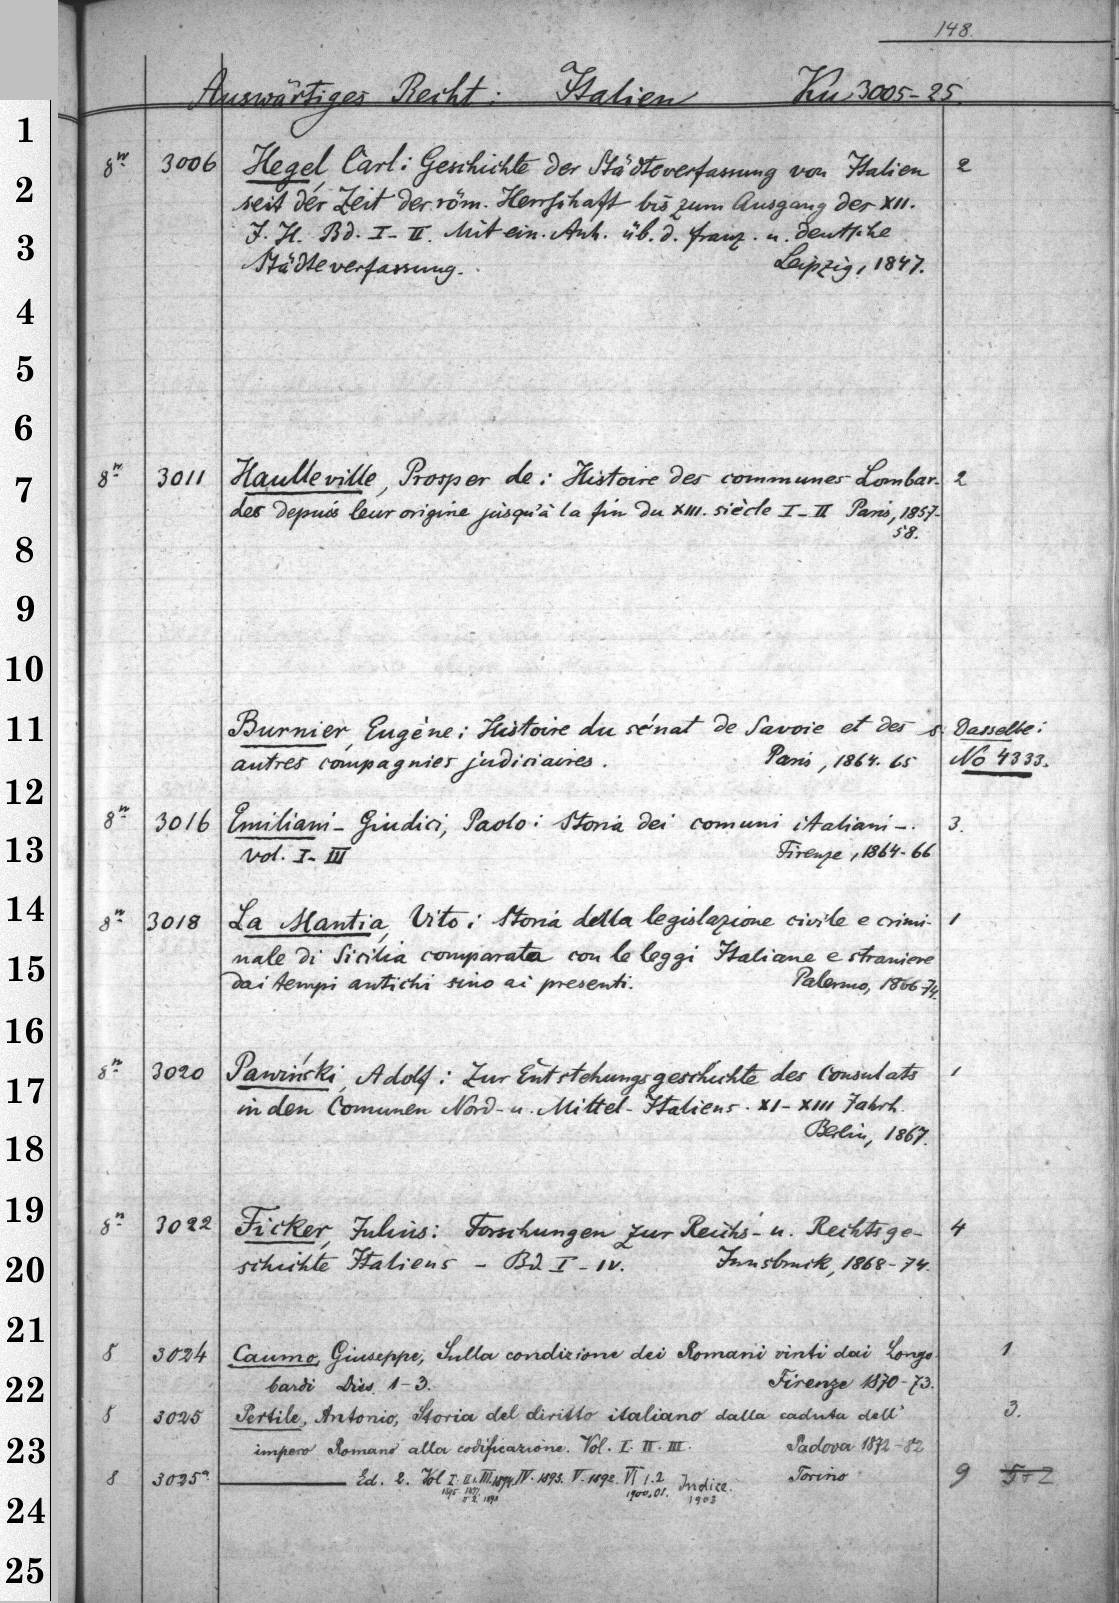 148.
Auswärtiges Recht: Italien Ku 3005-25.
1
8º 3006 Hegel, Carl: Geschichte der Städteverfassung von Italien 2
2
seit der Zeit der röm. Herrschaft bis zum Ausgang der XII.
3
J. H. Bd. I-II. Mit ein. Anh. üb. d. franz. u. deutsche
Städteverfassung. Leipzig, 1847.
4
5
6
7
8º 3011 Haulleville, Prosper de: Histoire des communes Lombar- 2
des depuis leur origine jusqu'à la fin du XIII. siècle I-II Paris, 1857-
58.
8
9
10
11
Burnier, Eugène: Histoire du sénat de Savoie et des s. Dasselbe:
autres compagnies judiciaires. Paris, 1864-65 No 4333.
12
8º 3016 Emiliani-Giudici, Paolo: Storia dei comuni italiani-. 3.
13
vol. I-III Firenze, 1864-66
14
8º 3018 La Mantia, Vito: Storia della legislazione civile e crimi- 1
nale di Sicilia comparata con le leggi Italiane e straniere
15
dai tempi antichi sino ai presenti. Palermo, 1866-74.
16
8º 3020 Pawiński, Adolf: Zur Entstehungsgeschichte des Consulats 1
17
in den Comunen Nord- u. Mittel-Italiens. XI-XIII Jahrh.
Berlin, 1867.
18
19
8º 3022 Ficker, Julius: Forschungen zur Reichs- u. Rechtsge- 4
20
schichte Italiens - Bd I-IV. Innsbruck, 1868-74.
21
8 3024 Caumo, Giuseppe, Sulla condizione dei Romani vinti dai Longo- 1
22
bardi Diss. 1-3. Firenze 1870-73.
8 3025 Pertile, Antonio, Storia del diritto italiano dalla caduta dell' 3.
23
impero Romano alla codificazione. Vol. I. II. III. Padova 1872-82
8 3025a ——— Ed. 2. Vol I. II1. III. 1894. IV. 1893. V. 1892. VI 1.2 Indice. Torino 9 5+2
1895 1897 1900.01. 1903
II 2. 1898
24
25